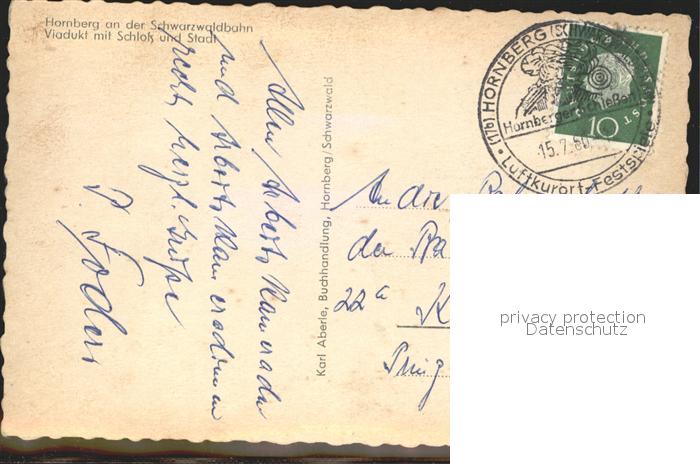 Hornberg an der Schwarzwaldbahn
Viadukt mit Schloß und Stadt
Allen Arbeitskameraden
und Arbeitskameradinnen
recht herzl. Grüße
Karl Aberle, Buchhandlung, Hornberg/Schwarzwald
(17b) HORNBERG (SCHWARZW
Hornberger
15.7.60
Luftkurort Festspiele
10
An die
der
22a
privacy protection
Datenschutz